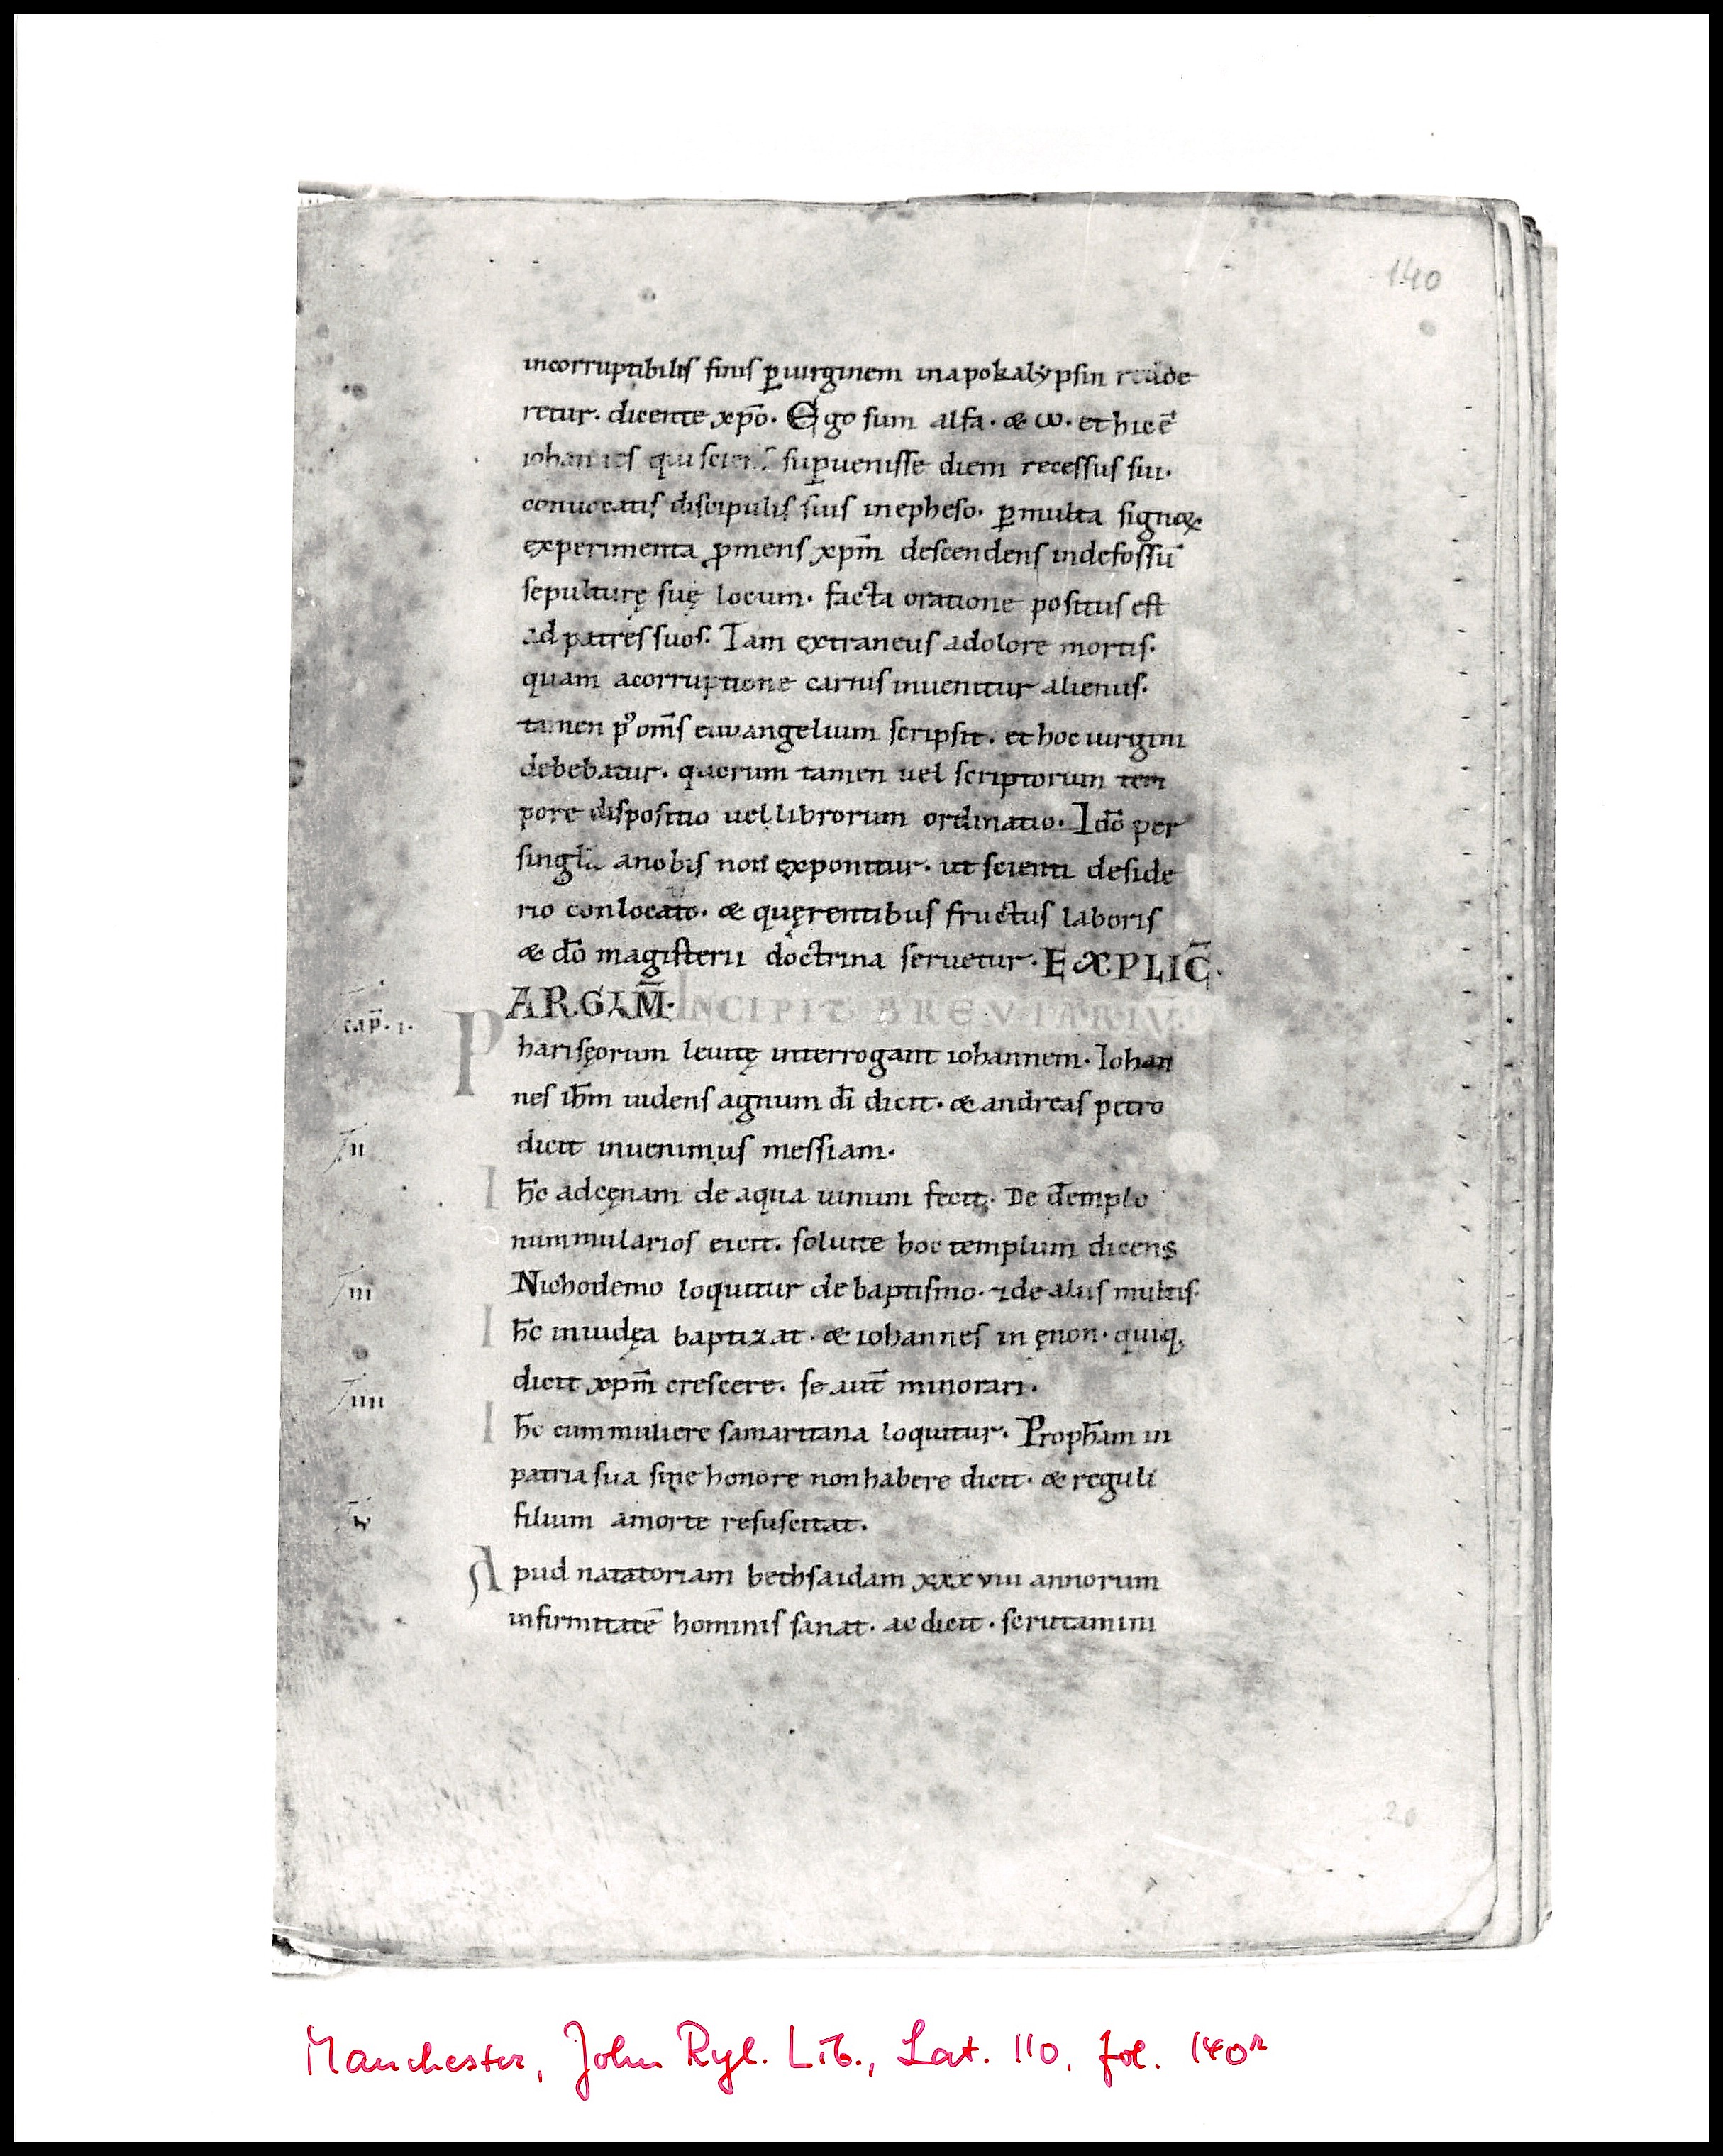 140
incorruptibilis finis ꝑ uirginem in apokalypsin redde
retur· dicente xp̄o· Ego sum alfa· & ω· et hic ē
iohannes qui sciens suꝑuenisse diem recessus sui·
conuocatis discipulis suis in epheso· ꝑ multa signoꝝ
experimenta ꝓmens xp̄m descendens in defossū
sepulturę suę locum· facta oratione positus est
ad patres suos· Tam extraneus a dolore mortis·
quam a corruptione carnis inuenitur alienus·
tamen p᷒ om̄s euuangelium scripsit· et hoc uirgini
debebatur· quorum tamen uel scriptorum tem
pore dispositio uel librorum ordinatio· Idō per
singla a nobis non exponitur· ut scienti deside
rio conlocato· & quęrentibus fructus laboris
& dō magisterii doctrina seruetur· EXPLIC̄·
ARGUM̄· INCIPIT BREVIARIV̄·
cap̄· i·
Pharisęorum leuitę interrogant iohannem· Iohan
nes ih̄m uidens agnum dī dicit· & andreas petro
dicit inuenimus messiam·
ii
Ih̄c ad cęnam de aqua uinum fecit· De d̄emplo
nummularios eicit· soluite hoc templum dicens
Nichodemo loquitur de baptismo· ⁊ de aliis multis·
iii
Ih̄c in iudęa baptizat· & iohannes in ęnon· quiq;
dicit xp̄m crescere· se aut̄ minorari·
iiii
Ih̄c cum muliere samaritana loquitur· Proph̄am in
patria sua sine honore non habere dicit· & reguli
filium a morte resuscitat·
v
Apud natatoriam bethsaidam xxxviii annorum
infirmitatē hominis sanat· ac dicit· scrutamini
20
Manchester, John Ryl. Lib., Lat. 110, fol. 140r